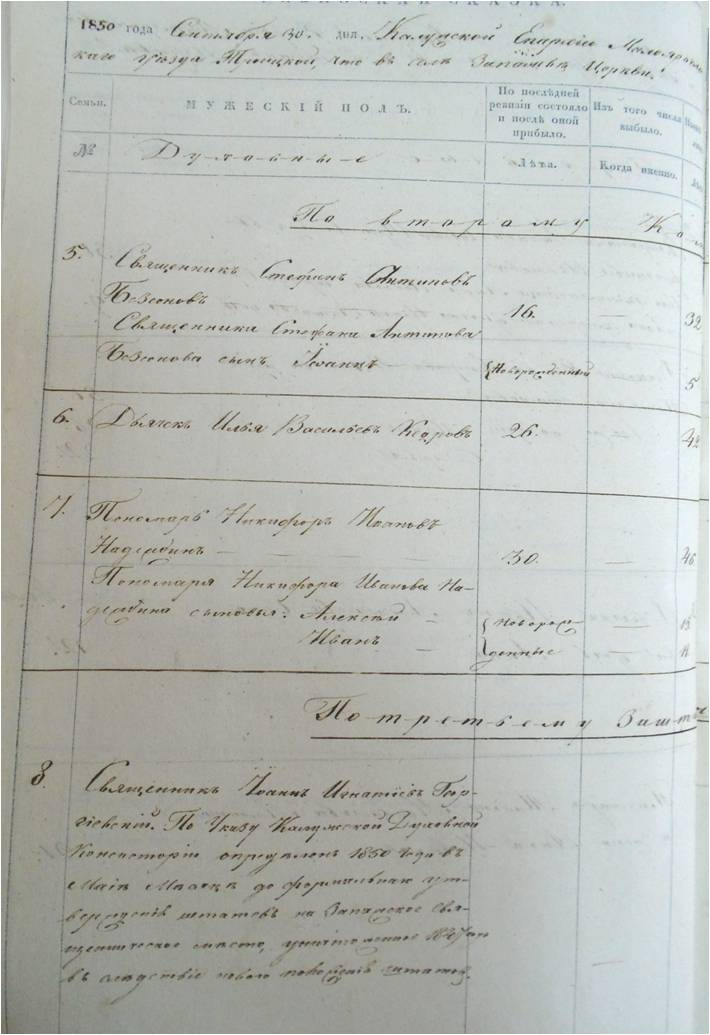 СКАЗКА.
1850 года Сентября 30. дня. Калужской Епархіи
каго уѣзда Троицкой, что въ селѣ Церкви.
Семьи.
МУЖЕСКІЙ ПОЛЪ.
По послѣдней
ревизіи состояло
и послѣ оной
прибыло.
Изъ того числа
выбыло.
№
Духовные
Лѣта.
Когда именно.
По второму Ком
5. Священникъ Стефанъ Антиповъ
Безсоновъ 16. — 32
Священника Стефана Антипова
Безсонова сынъ Іоаннъ — Новорожденный 5
6. Дьячекъ Илья Васильевъ Кедровъ 26. 42
7. Пономарь Никифоръ Ивановъ
Надеждинъ — 30. — 46
Пономаря Никифора Иванова На-
деждина сыновья: Алексѣй Новорож- — 15
Иванъ — денные — 11
По третьему Зашт
8. Священникъ Іоаннъ Игнатіевъ Геор-
гіевскій. По Указу Калужской Духовной
Консисторіи опредѣленъ 1850 года въ
Маіѣ Мѣсяцѣ до формальнаго ут-
вержденія штатовъ на Свя-
щенническое мѣсто, 1847
въ слѣдствіе новаго штатов.